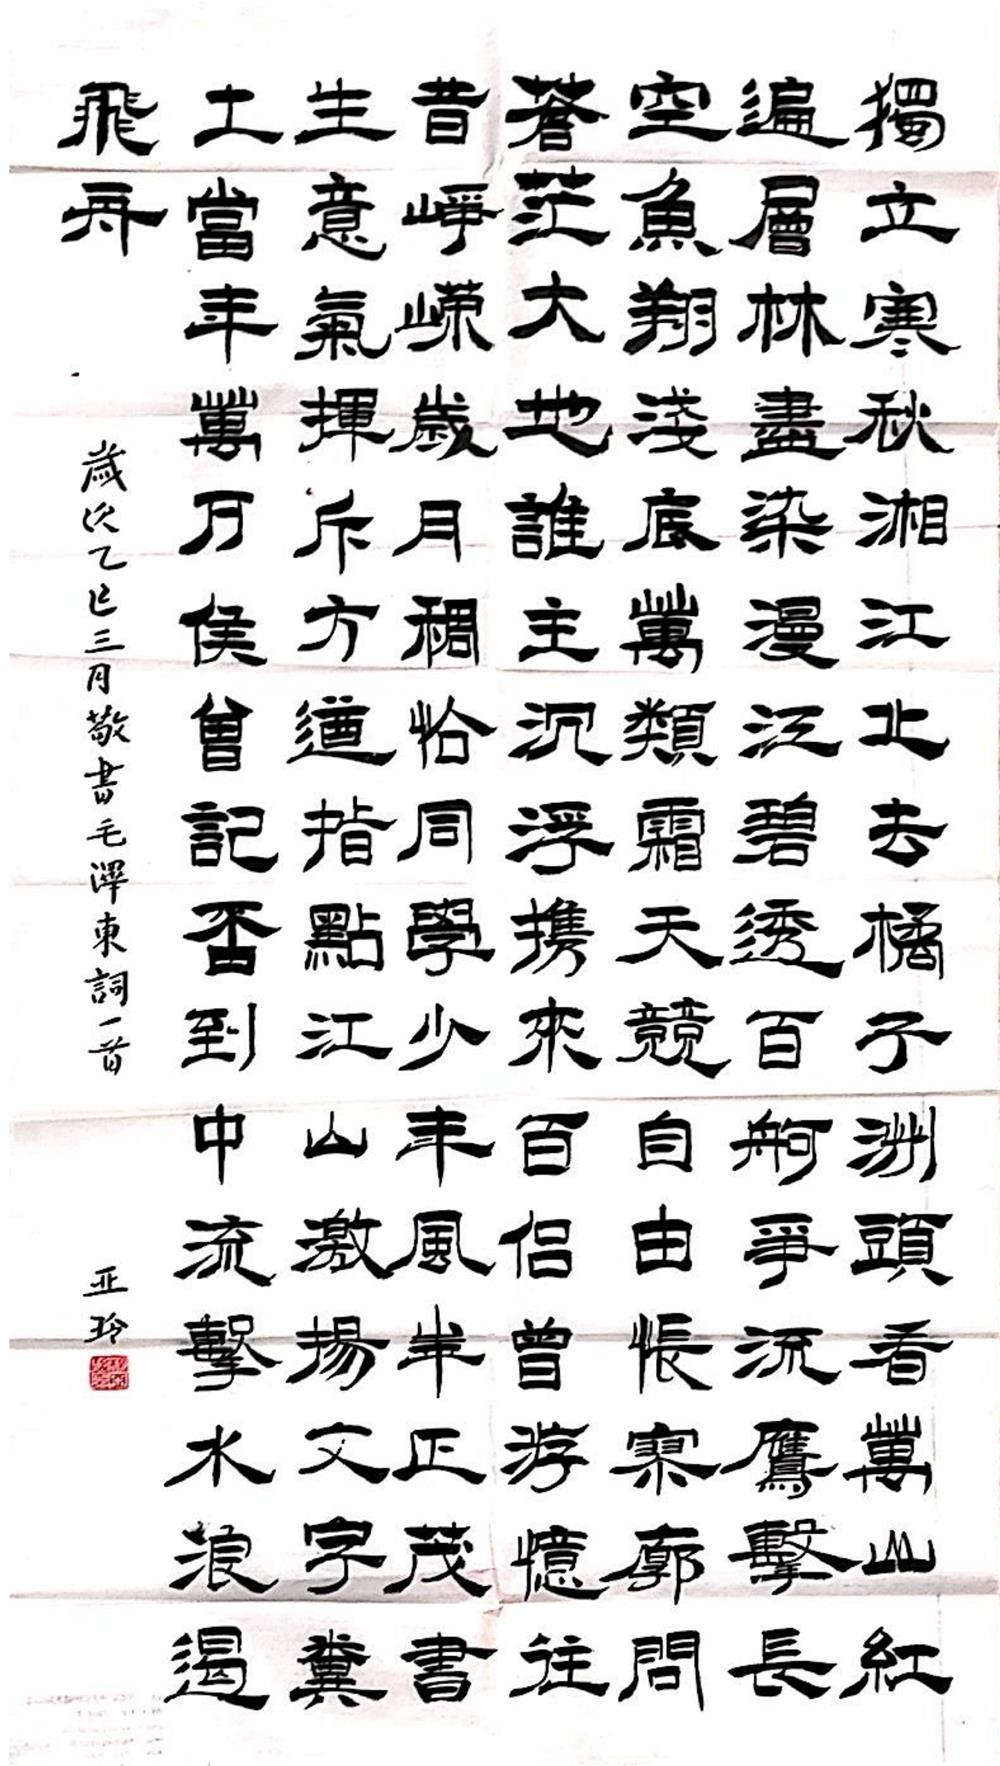 獨立寒秋湘江北去橘子洲頭看萬山紅
遍層林盡染漫江碧透百舸爭流鷹擊長
空魚翔淺底萬類霜天競自由悵寥廓問
蒼茫大地誰主沉浮携來百侣曾游憶往
昔崢嶸歲月稠恰同學少年風華正茂書
生意氣揮斥方遒指點江山激揚文字糞
土當年萬户侯曾記否到中流擊水浪遏
飛舟
歲次乙巳三月敬書毛澤東詞一首
亚玲